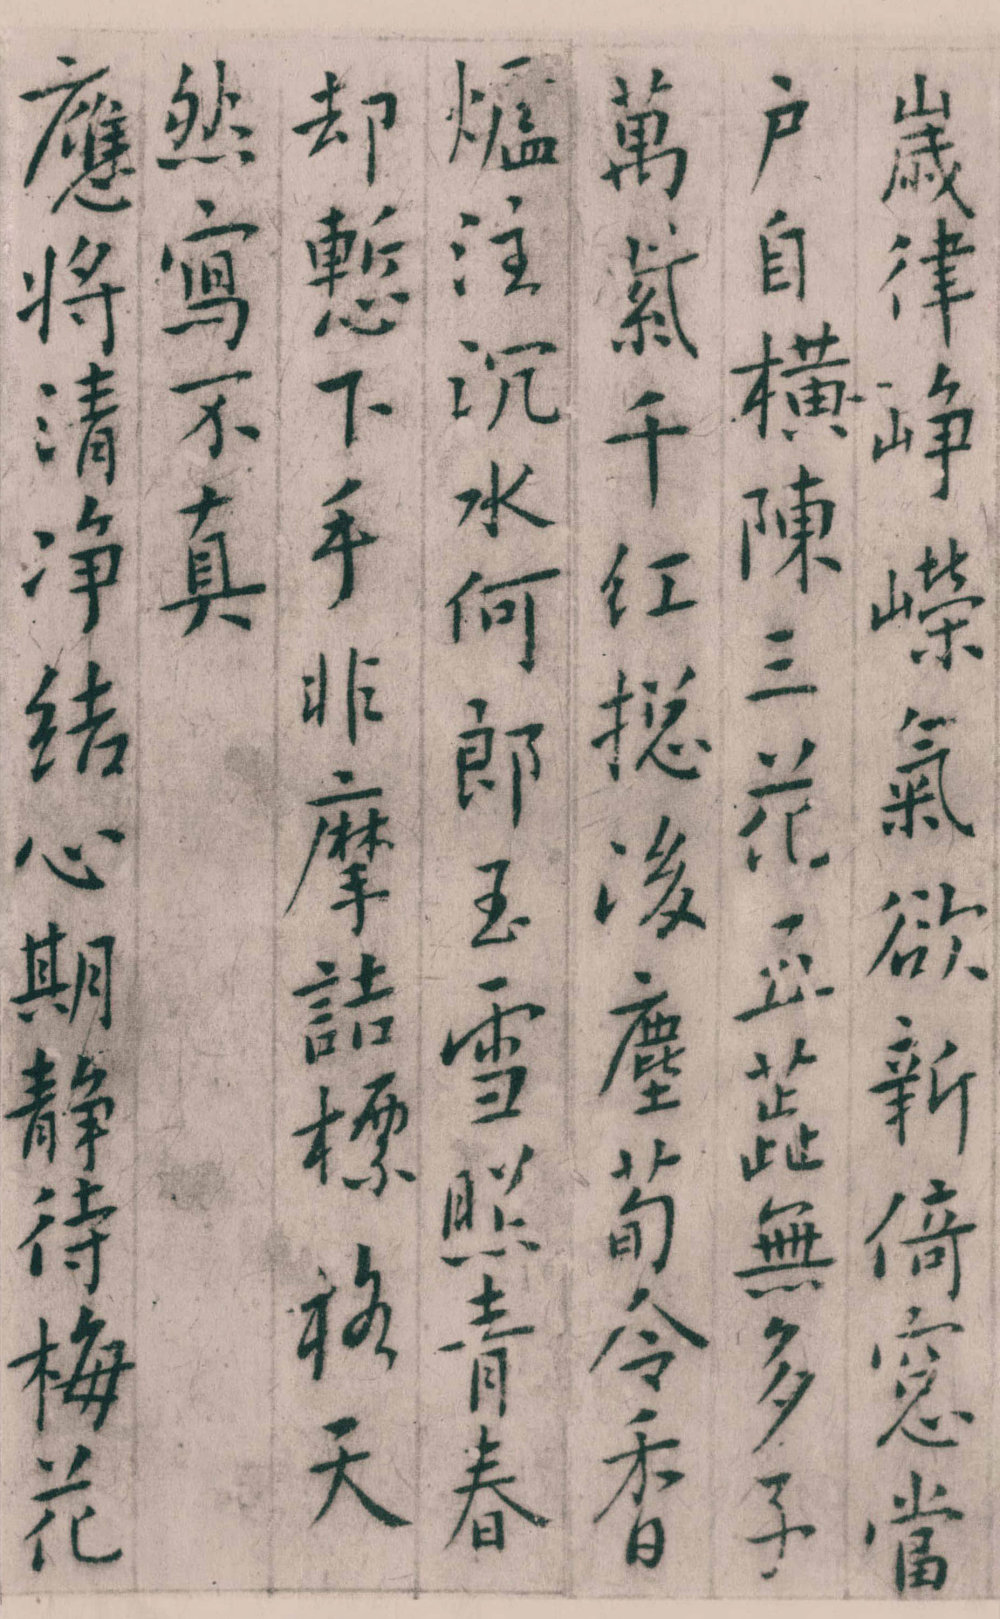 歲律崢嶸氣欲新倚窓當
户自橫陳三花五蕋無多子
萬紫千紅摠後塵荀令香
爐注沉水何郎玉雪照青春
却慙下手非摩詰標格天
然寫不真
應將清净結心期静待梅花